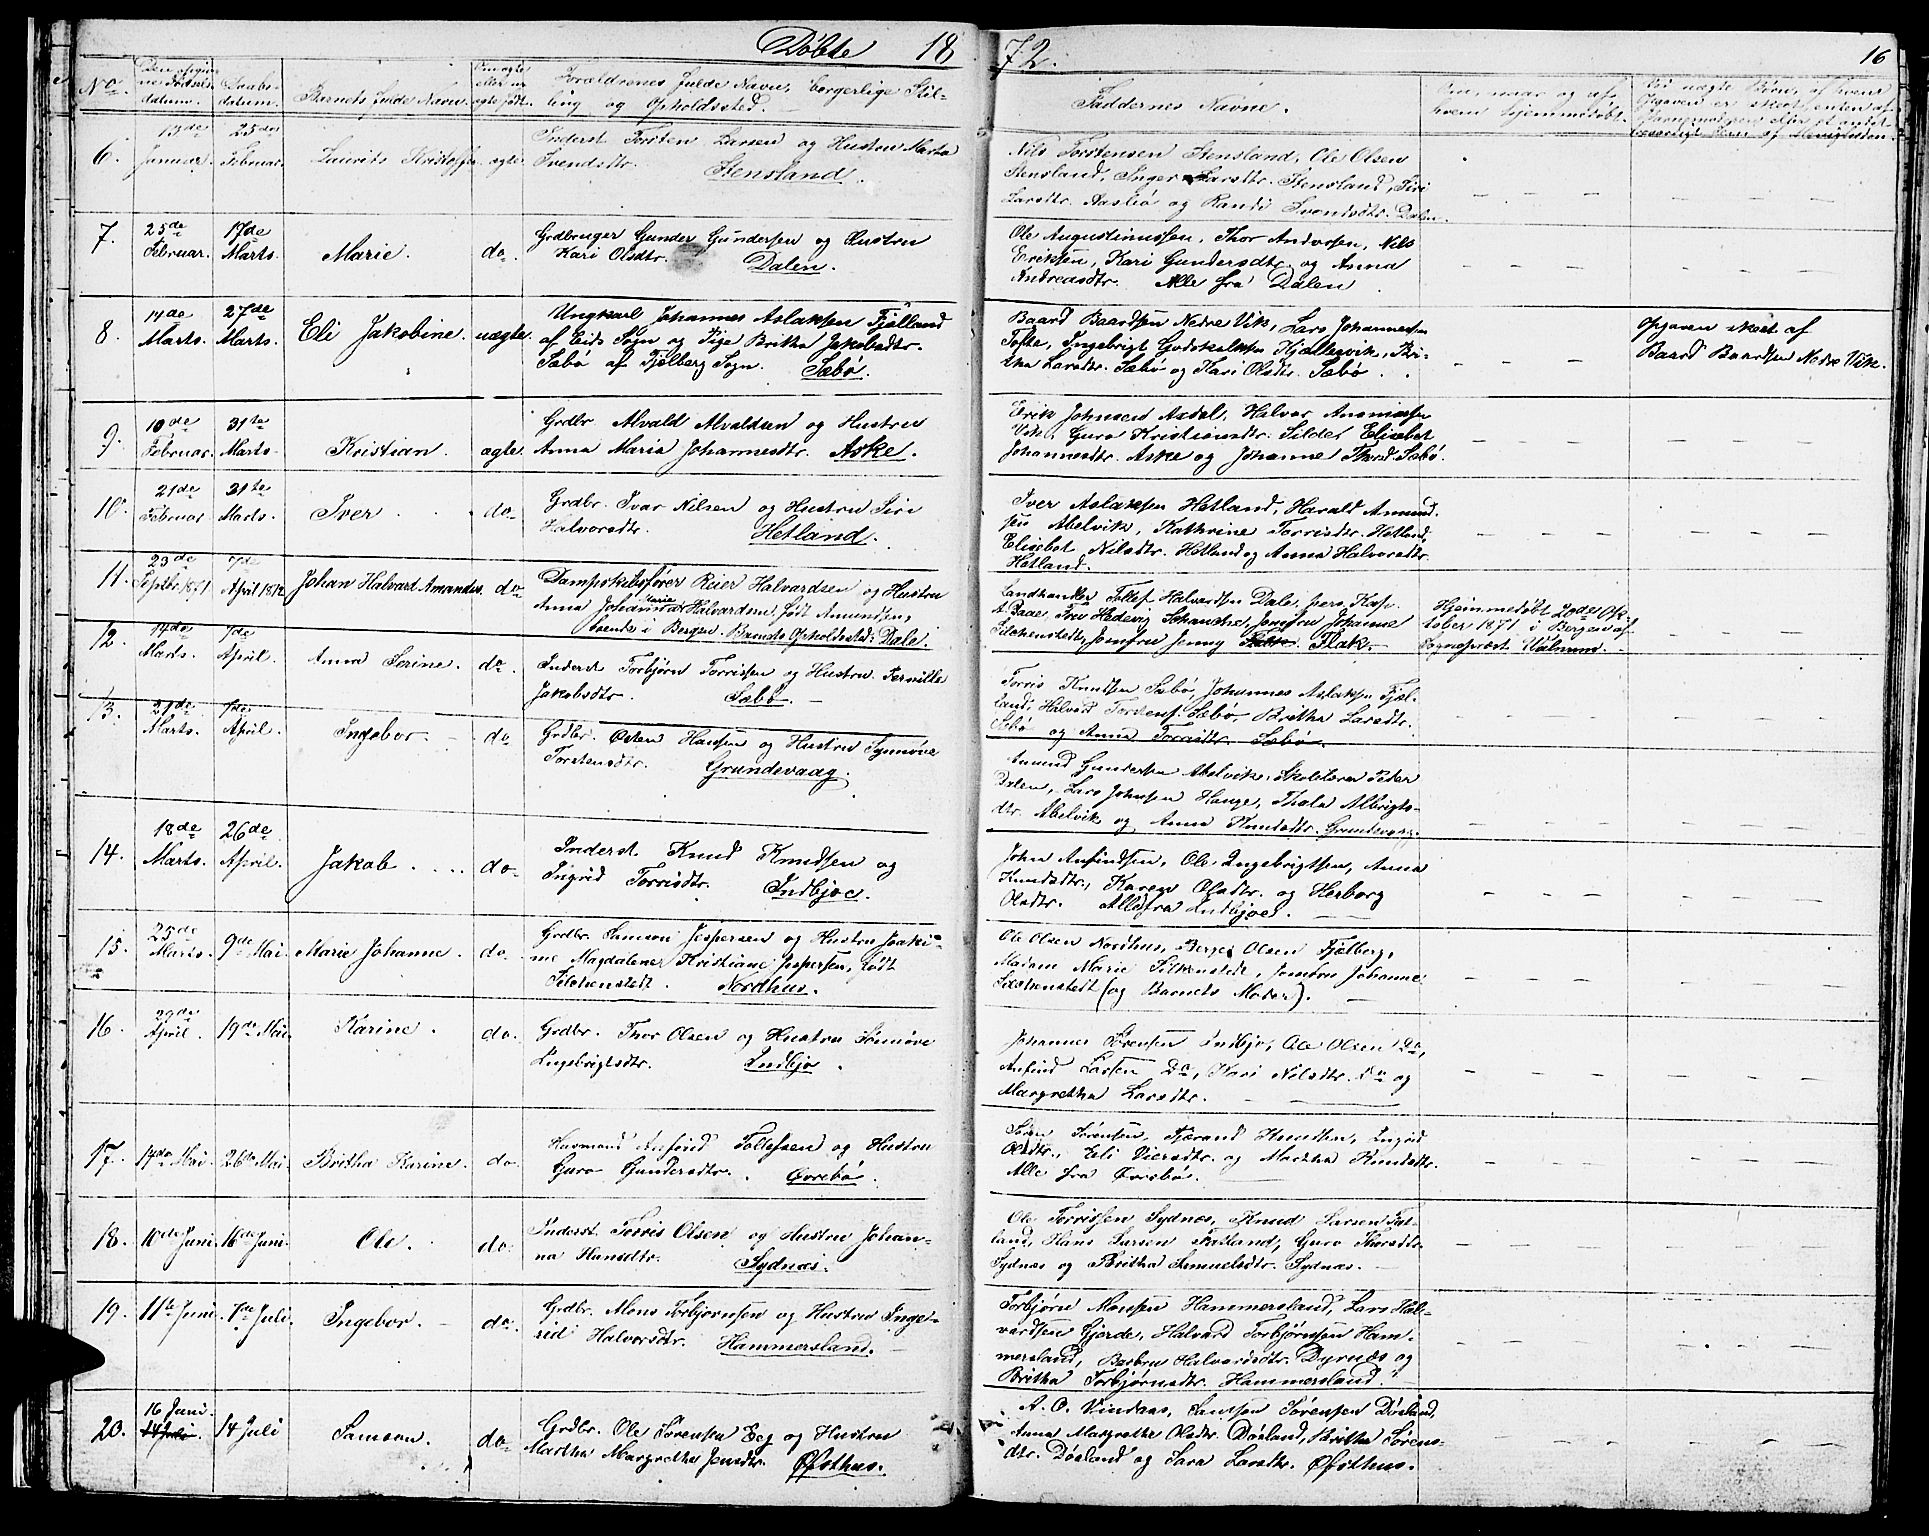 Døbte 1872.
16
No. Fødsels-datum. Daabs-datum. Barnets fulde Navn. Om egte eller uegte født. Forældrenes fulde Navn, borgerlige Stil-
ling og Opholdssted.
Faddernes Navne.
Om, naar og af
hvem hjemmedøbt.
6. 13de Januar. 25de Februar. Laurits ægte. Inderst Torsten Larsen og Hustru Marta
Svendsdtr. Stensland.
Nils Torstensen Stensland, Ole Olsen
Stensland, Inger Larsdtr. Stensland, Siri
Larsdtr. og Randi Svendsdtr. Dalen.
7. 25de Februar. 17de Marts. Marie. do. Grdbruger Gunder Gundersen og Hustru
Kari Olsdtr. Dalen.
Ole Augustinussen, Thor Andersen, Nils
Eriksen, Kari Gundersdtr. og Anna
Andreasdtr. Alle fra Dalen
8. 14de Marts. 27de Marts. Eli Jakobine. uægte. Ungkarl Johannes Aslaksen Fjælland
af Eids Sogn og Pige Britha Jakobsdtr.
Sæbø af Fjelberg Sogn. Sæbø.
Baard Baardsen Nedre Vik, Lars Johannessen
Tofte, Ingebrigt Godskalksen Kjælkevik, Bri-
tha Larsdtr. Sæbø og Kari Olsdtr. Sæbø.
Opgaven skeet af
Baard Baardsen Nedre Vik.
9. 10de Februar. 31te Marts. Kristian. ægte. Grdbr. Alvald Alvaldsen og Hustru
Anna Maria Johannesdtr. Aske.
Erik Johnsen Axdal, Halvor
Vik, Guro Kristiansdtr. Silde, Elisabet
Johannesdtr. Aske og Johanne Thorsd. Sæbø.
10. 21de Februar 31te Marts. Iver. do. Grdbr. Ivar Nilsen og Hustru Siri
Halvorsdtr. Hetland.
Iver Aslaksen Hetland, Harald Amund-
sen Abelvik, Kathrine Torrisdtr. Hetland,
Elisebet Nilsdtr. Hetland og Anna Halvorsdtr.
Hetland.
11. 23de Septbr 1871 7de April 1872 Johan Halvard Amandus. do. Dampskibsfører Reier Halvardsen og Hustru
Anna Johanna Marie Halvardsen, født Amundsen,
boende i Bergen. Barnets Opholdssted: Dale.
Landhandler Tollef Halvardsen Dale, pers. Kap.
A. Daae, Fru Hedevig Schanche, Jomfru Johanne
Silchenstedt, Jomfru Jenny Flak.
Hjemmedøbt 20de Ok-
tober 1871 i Bergen af
Sogneprest
12. 14de Marts. 7de April. Anna Serine. do. Inderst Torbjørn Torrissen og Hustru Pernille
Jakobsdtr. Sæbø.
Torris Knudsen Sæbø, Johannes Aslaksen Fjæl-
land, Halvard Tordens. Sæbø, Britha Larsdtr.
Sæbø og Anna Torrisdtr. Sæbø.
13. 21de Marts. 7de April. Ingebor. do. Grdbr. Østen Hansen og Hustru Synnøve
Torstensdtr. Grundevaag.
Amund Gundersen Abelvik, Skolelærer Peder
Dalen, Lars Johnsen Hauge, Thala Albrigts-
dtr. Abelvik og Anna Knudsdtr. Grundevaag.
14. 18de Marts. 26de April. Jakob. do. Inderst. Knud Knudsen og
Ingrid Torrisdtr. Indbjoe.
John Anfindsen, Ole Ingebrigtsen, Anna
Knudsdtr., Karen Olsdtr. og Herborg
Olsdtr. Alle fra Indbjoe.
15. 25de Marts. 9de Mai. Marie Johanne. do. Grdbr. Samson Jespersen og Hustru Joaki-
me Magdalene Kristiane Jespersen, født
Silchenstedt. Nordhus.
Ole Olsen Nordhus, Berge Olsen Fjelberg,
Madam Marie Silkenstedt, Jomfru Johanne
Silchenstedt (og Barnets Moder).
16. 29de April. 19de Mai. Karine. do. Grdbr. Thor Olsen og Hustru Synnøve
Ingebrigtsdtr. Indbjo.
Johannes Sørensen Indbjo, Ole Olsen Do,
Anfind Larsen Do, Kari Nilsdtr. Do og
Margretha Larsdtr.
17. 14de Mai. 26de Mai. Britha Karine. do. Husmand Anfind Tollefsen og Hustru
Guro Gundersdtr. Øvrebø.
Søren Sørensen, Tjærand Knudsen, Ingrid
Olsdtr., Eli Viersdtr. og Martha Knudsdtr.
Alle fra Øvrebø.
18. 10de Juni. 16de Juni. Ole. do. Inderst. Torris Olsen og Hustru Johan-
na Hansdtr. Sydnæs.
Ole Torrissen Sydnæs, Knud Larsen Fat-
land, Hans Larsen Fatland, Guro Thorsdtr.
Sydnæs og Britha Samuelsdtr. Sydnæs.
19. 11te Juni. 7de Juli. Ingebor. do. Grdbr. Mons Torbjørnsen og Hustru Inge-
rid Halvorsdtr. Hammersland.
Torbjørn Monsen Hammersland, Lars Hal-
vardsen Gjerde, Halvard Torbjørnsen Ham-
mersland, Barbru Halvardsdtr. Dyrnæs og
Britha Torbjørnsdtr. Hammersland.
20. 16 Juni. 14 Juli. 14 Juli Samson. do. Grdbr. Ole Sørensen Eeg og Hustru
Martha Margretha Jensdtr. Øfsthus.
A. O. Vindaas, Samson Sørensen Døsland,
Anna Margrethe Olsdtr. Døsland, Britha Sørens-
dtr. Døsland og Sara Larsdtr. Øfsthus.